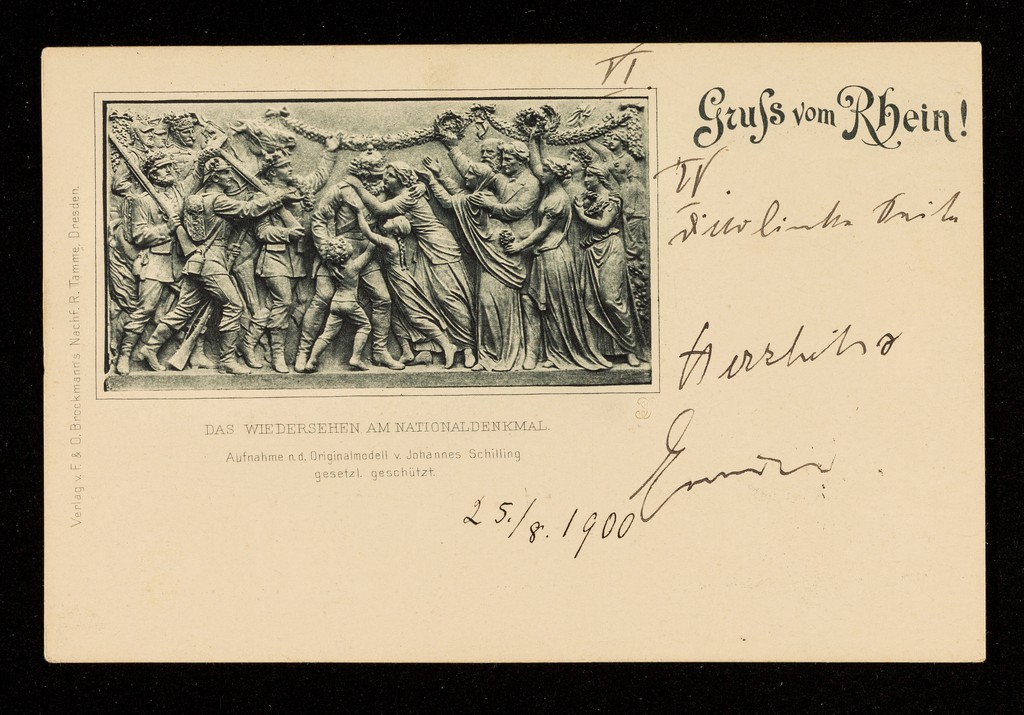 VI
Gruſs vom Rhein!
IV.
linke Seite
DAS WIEDERSEHEN AM NATIONALDENKMAL.
Aufnahme n.d. Originalmodell v. Johannes Schilling
gesetzl. geschützt.
25./8. 1900
Verlag v. F. & O. Brockmann's Nachf. R. Tamme, Dresden.